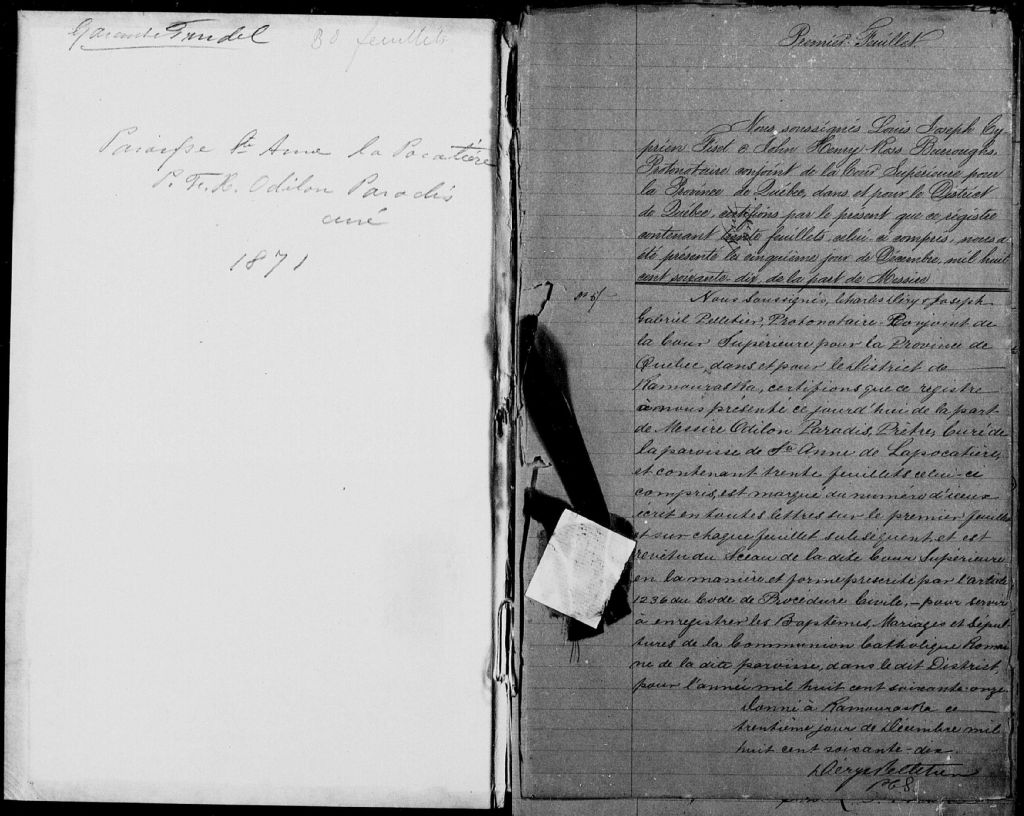 Fandel
30 feuillets
Paroisse Ste Anne la Pocatière
P. Fr. X. Odilon Paradis
curé
1871
Premier Feuillet
Nous, soussignés, Louis Joseph Cy-
prien Fiset & John Henry Ross Burroughs,
Protonotaire conjoint de la Cour Supérieure pour
la Province de Québec, dans et pour le District
de Québec, certifions par le présent que ce registre
contenant trente feuillets, celui-ci compris, nous a
été présenté le cinquième jour de Décembre, mil huit
cent soixante-dix, de la part de Messire
No 5
Nous Soussignés, Charles Déry & Joseph
Gabriel Pelletier, Protonotaire Conjoint de
la Cour Supérieure pour la Province de
Québec, dans et pour le District de
Kamouraska, certifions que ce registre
à nous présenté ce jourd'hui de la part
de Messire Odilon Paradis, Prêtre, Curé de
la paroisse de Ste Anne de Lapocatière,
et contenant trente feuillets celui-ci
compris, est marqué du numéro d'iceux
écrit en toutes lettres sur le premier feuillet
et sur chaque feuillet subséquent, et est
revêtu du Sceau de la dite Cour Supérieure
en la manière et forme prescrite par l'article
1236 du Code de Procédure Civile, – pour servir
à enregistrer les Baptêmes, Mariages et Sépul-
tures de la Communion Catholique Romai-
ne de la dite paroisse, dans le dit District,
pour l'année mil huit cent soixante-onze.
Donné à Kamouraska ce
trentième jour de Décembre mil
huit cent soixante-dix.
Déry & Pelletier
P C S